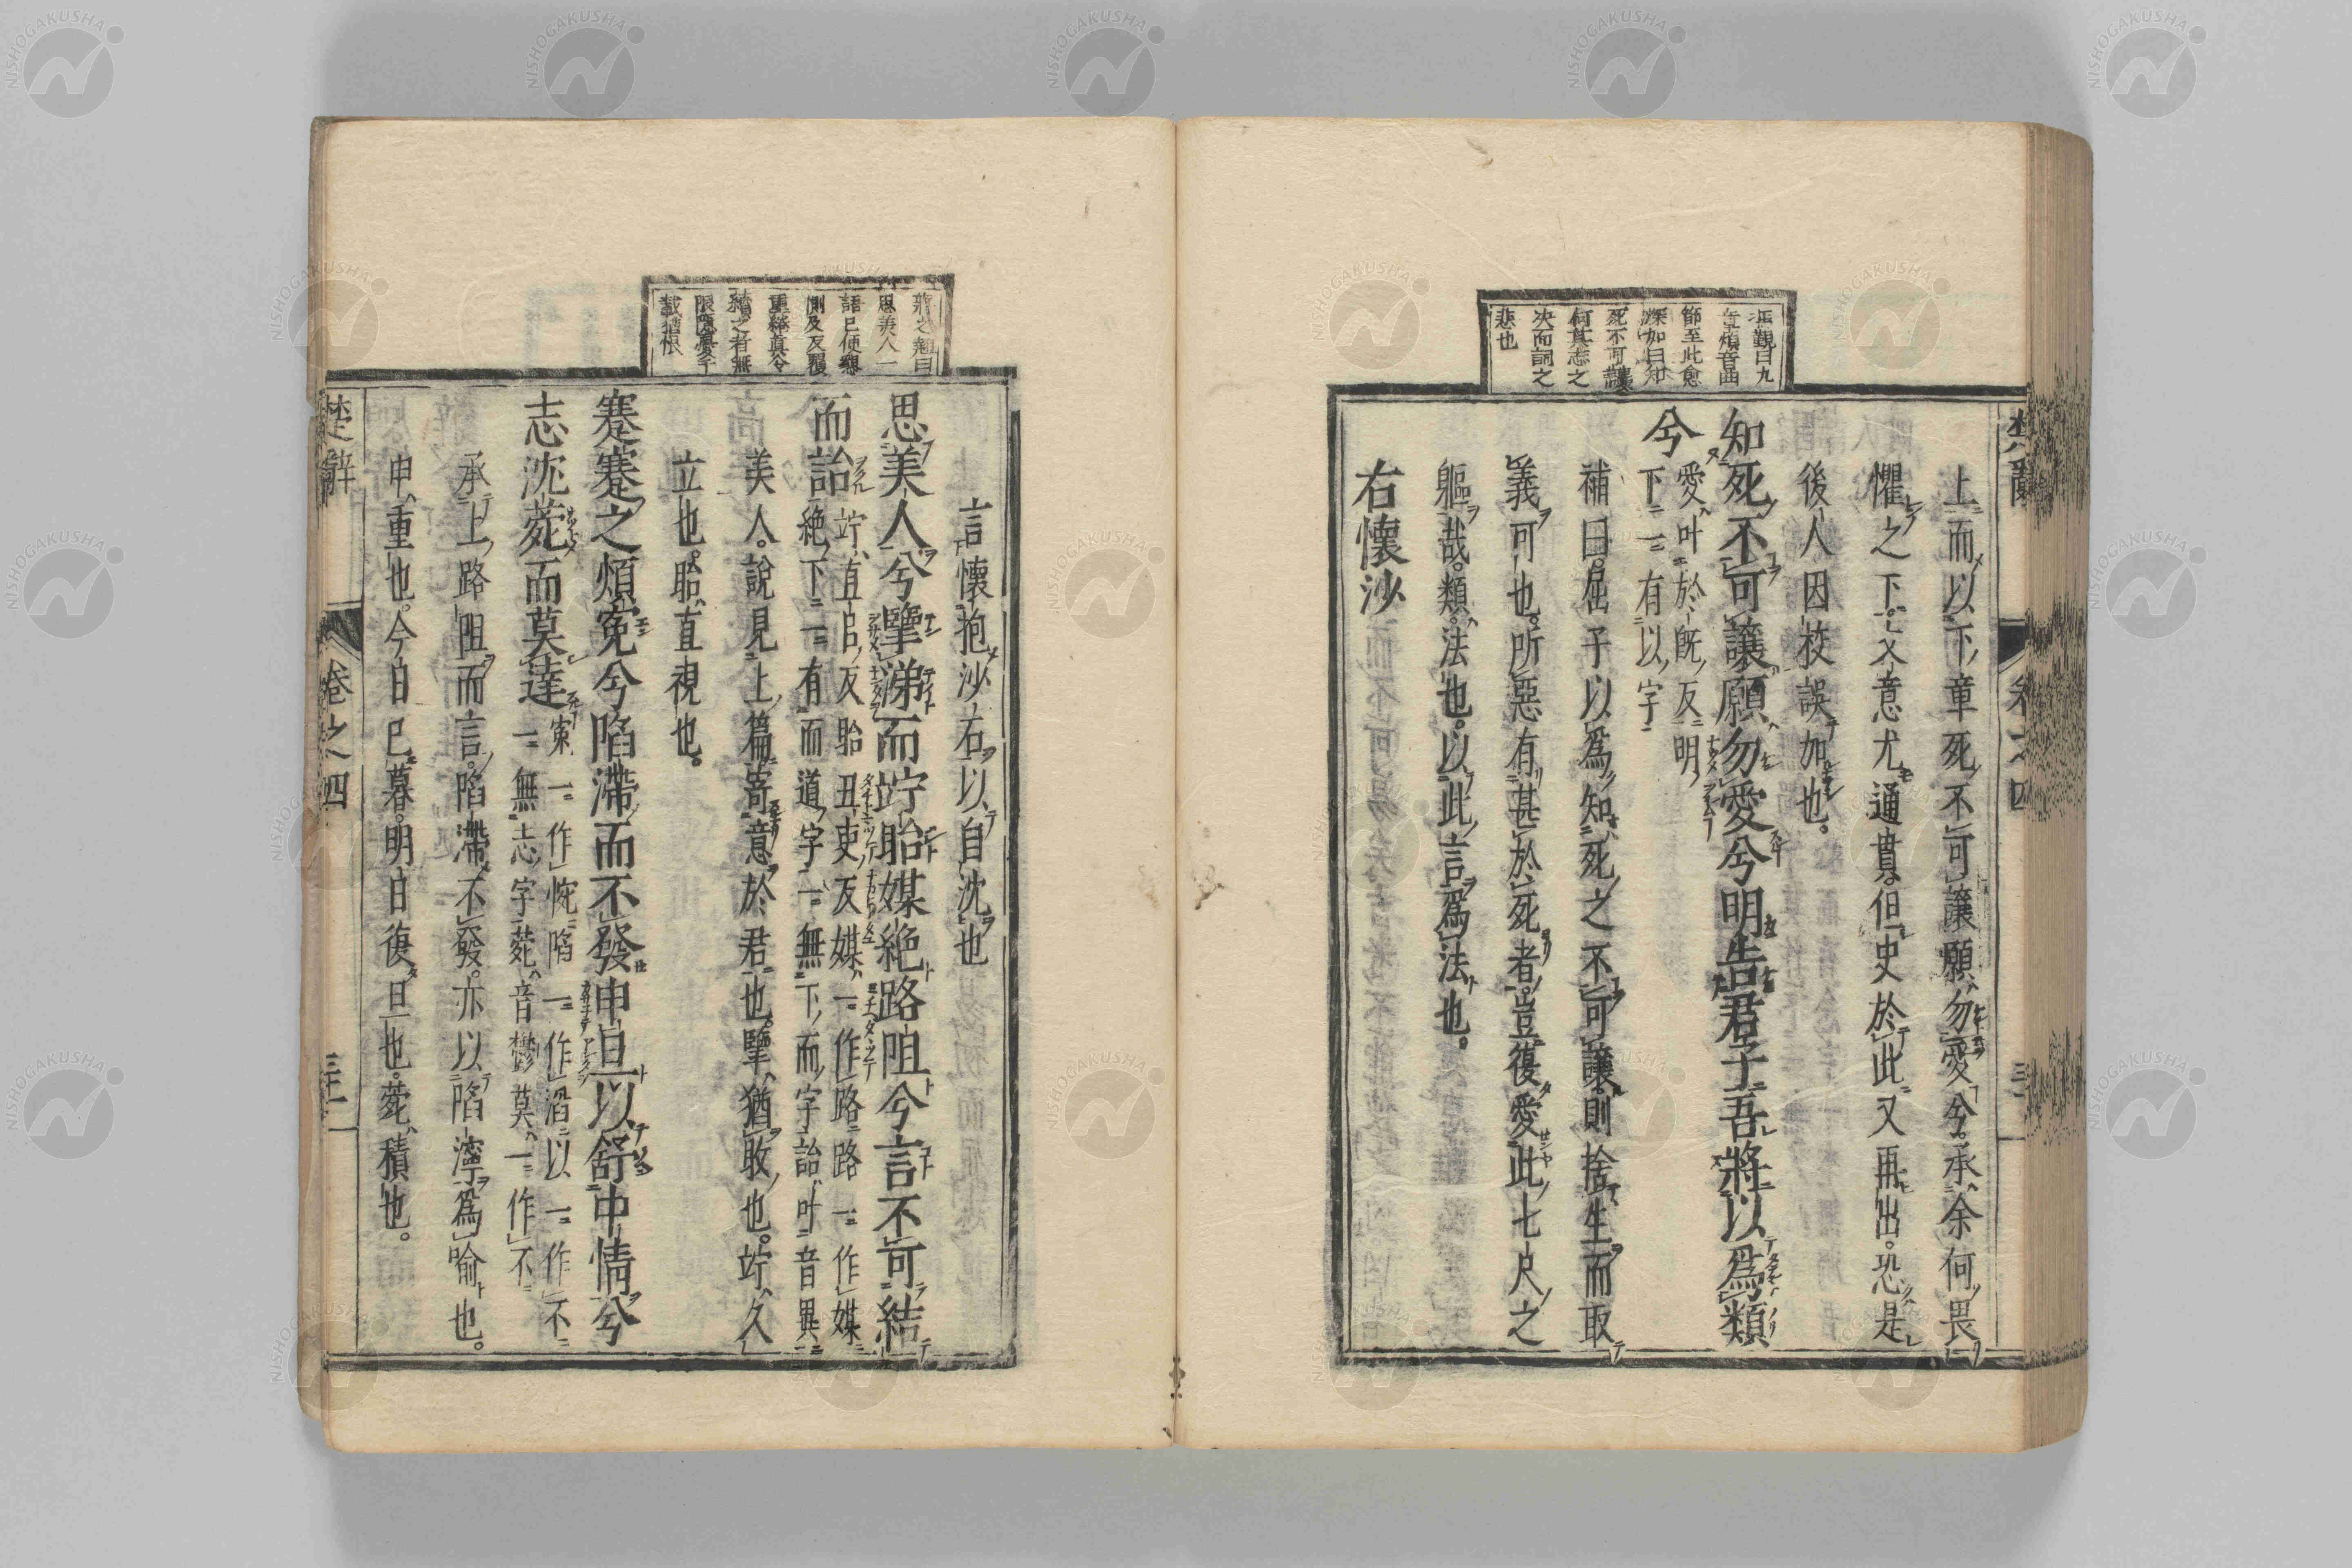 馮覲曰九
章煩音曲
節至此愈
深如曰知
死不可讓
何其志之
決而詞之
悲也
上而以下章死不可讓願勿愛兮承余何畏
懼之下文意尤通貫但史於此又再出恐是
後人因校誤加也
知死不可讓願勿愛兮明告君子吾將以爲類
兮
愛叶於旣反明
下一有以字
補曰屈子以爲知死之不可讓則捨生而取
義可也所惡有甚於死者豈復愛此七尺之
軀哉類法也以此言爲法也
右懷沙
楚辭
卷之四
蔣之翹曰
思美人一
語已使戀
惻及反覆
重繹真令
續之者無
限隱憂千
載猶恨
言懷抱沙石以自沈也
思美人兮擥涕而竚眙媒絶路阻兮言不可結
而詒
竚直呂反眙丑吏反媒一作路路一作媒
絶下一有而道字一無下而字詒叶音異
美人說見上篇寄意於君也擥猶收也竚久
立也眙直視也
蹇蹇之煩寃兮陷滯而不發申旦以舒中情兮
志沈菀而莫達
寃一作惋陷一作滔以一作不
一無志字菀音鬱莫一作不
承上路阻而言陷滯不發亦以陷濘爲喻也
申重也今日已暮明日復旦也菀積也
楚辭
卷之四